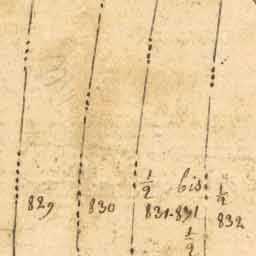 1/2 bis 1/2
829 830 831.831 832
1/2